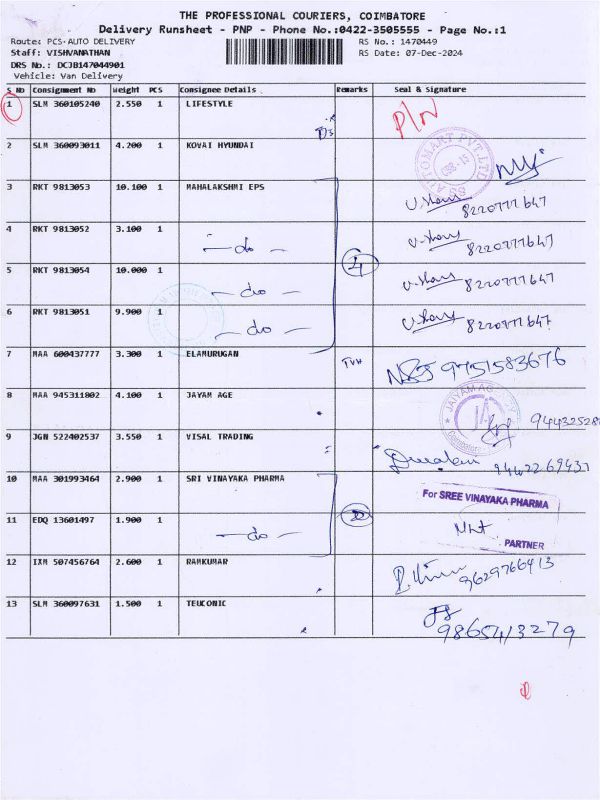 THE PROFESSIONAL COURIERS, COIMBATORE
Delivery Runsheet - PNP - Phone No.:0422-3505555 - Page No.:1
Route: PCS-AUTO DELIVERY RS No.: 1470449
Staff: VISHVANATHAN RS Date: 07-Dec-2024
DRS No.: DCJB147044901
Vehicle: Van Delivery
S No Consignment No Weight PCS Consignee Details Remarks Seal & Signature
1 SLM 360105240 2.550 1 LIFESTYLE
2 SLM 360093011 4.200 1 KOVAI HYUNDAI
3 RKT 9813053 10.100 1 MAHALAKSHMI EPS 8220777647
4 RKT 9813052 3.100 1 — do — 8220777647
5 RKT 9813054 10.000 1 — do — 8220777647
6 RKT 9813051 9.900 1 — do — 8220777647
7 MAA 600437777 3.300 1 ELAMURUGAN 9751583676
8 MAA 945311802 4.100 1 JAYAM AGE
9 JGN 522402537 3.550 1 VISAL TRADING
10 MAA 301993464 2.900 1 SRI VINAYAKA PHARMA For SREE VINAYAKA PHARMA
11 EDQ 13601497 1.900 1 — do — PARTNER
12 IXM 507456764 2.600 1 RAMKUMAR 9629766413
13 SLM 360097631 1.500 1 TEUKONIC 9865413279